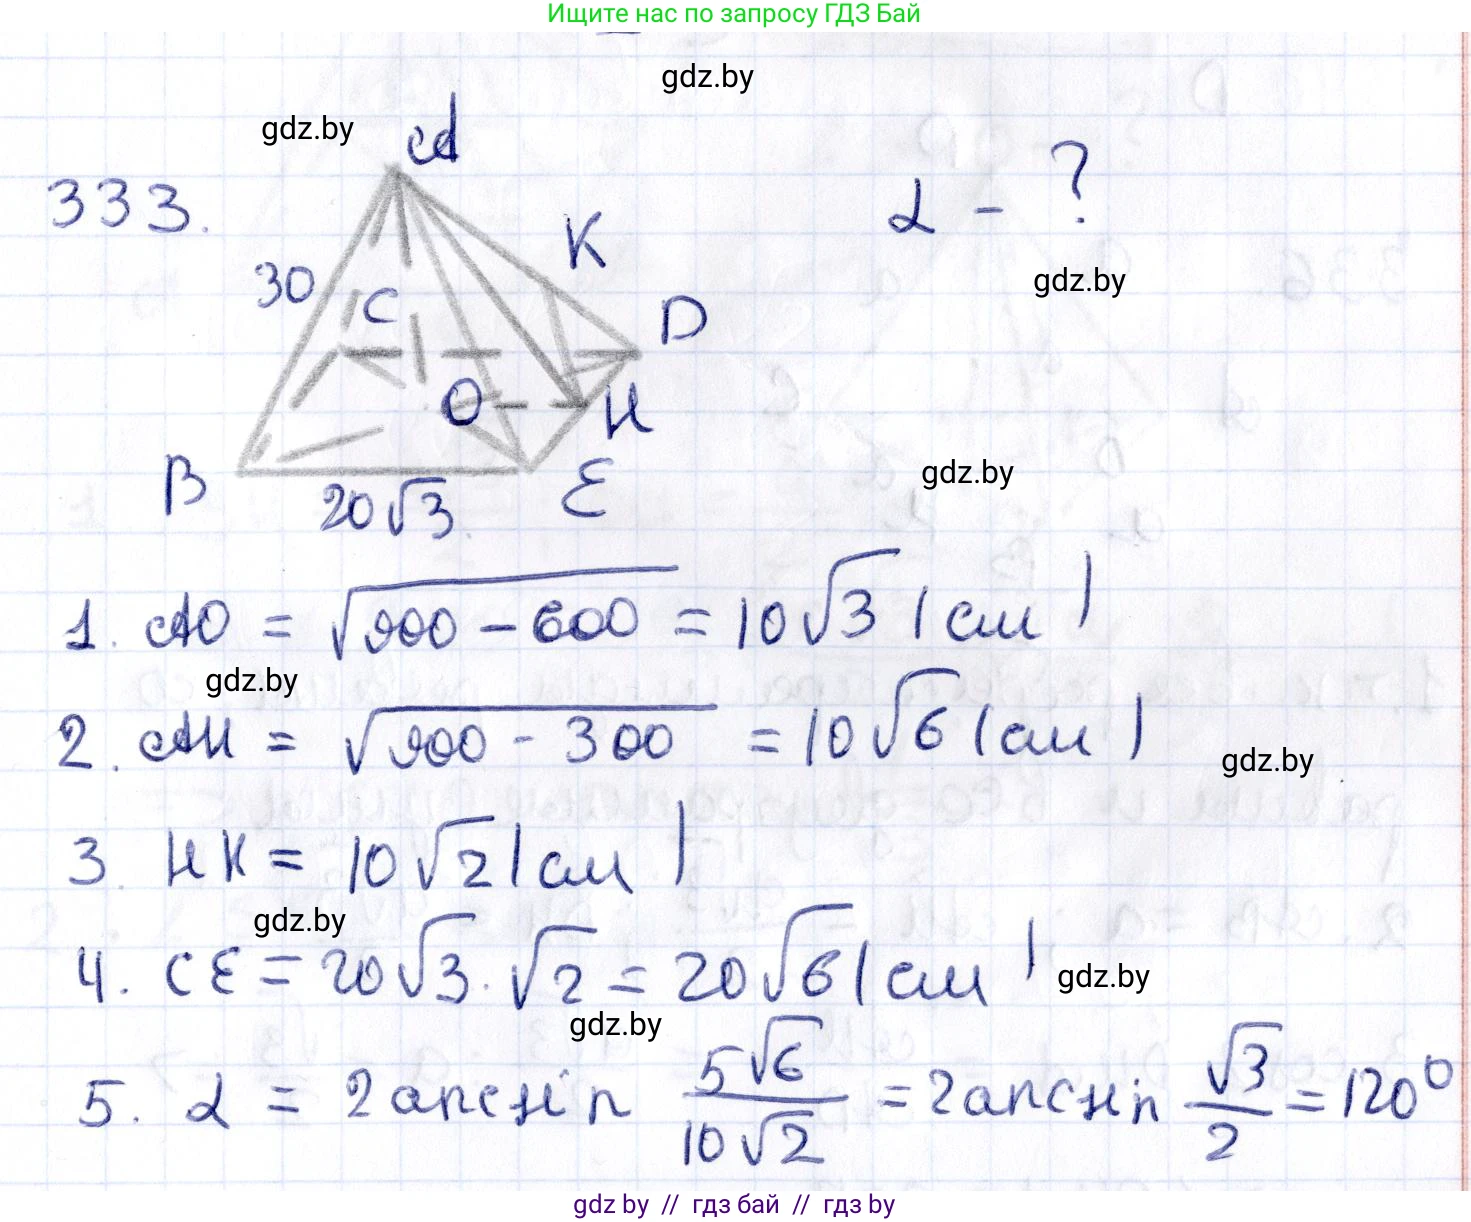 Ищите нас по запросу ГДЗ Бай
gdz.by
gdz.by
A
333.
α - ?
K
30
C
gdz.by
D
O
H
B
E
gdz.by
20√3
1. AO = √900 - 600 = 10√3 (см)
gdz.by
2. AH = √900 - 300 = 10√6 (см)
gdz.by
3. HK = 10√2 (см)
gdz.by
4. CE = 20√3 · √2 = 20√6 (см)
gdz.by
gdz.by
5. α = 2 arcsin 5√6/10√2 = 2 arcsin √3/2 = 120°
gdz by // гдз бай // гдз by